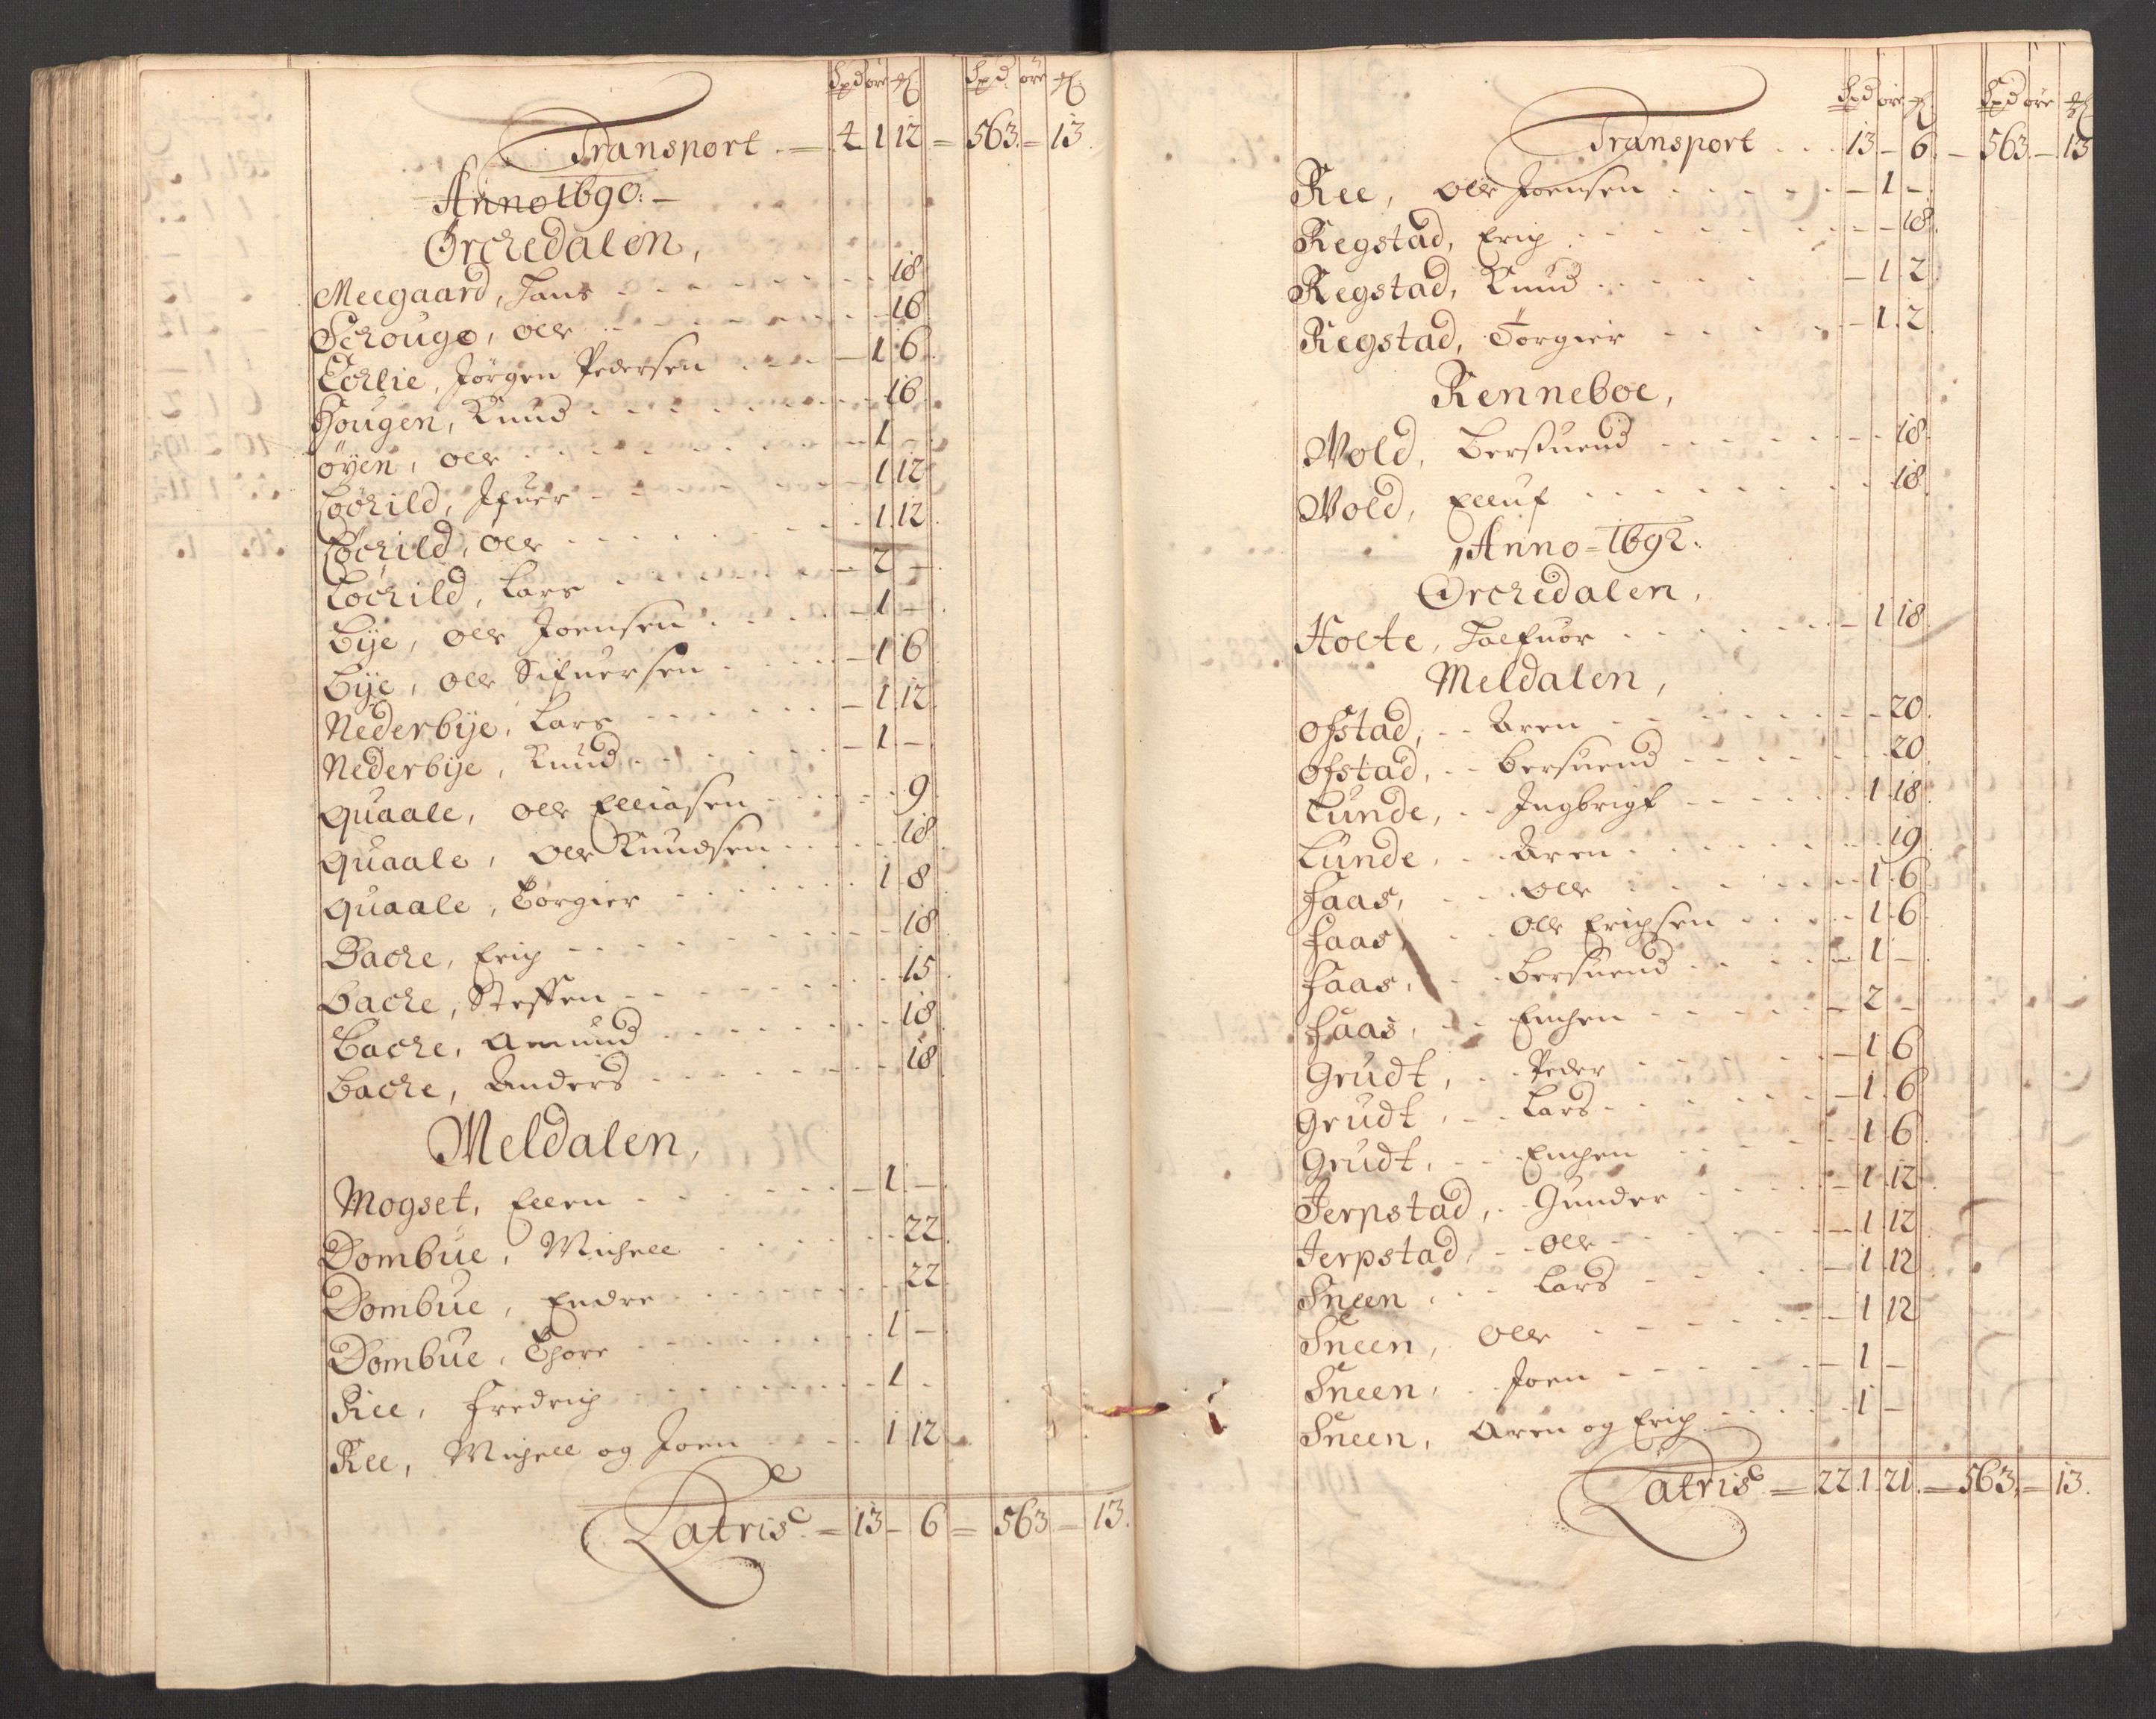 Spd öre
Spd öre
Transport - 4 1 12 = 563 = 13.
Anno 1690.
Orchedalen,
Meegaard, Hans 18
Schouge, Olle 16
Echlie, Jørgen Pedersen 1 6
Hougen, Knud 16
öyen, Olle 1 -
Löchild, Ifuer 1 12
Löchild, Olle 1 12
Löchild, Lars 2 -
Bÿe, Olle Joensen 1 -
Bÿe, Olle Sifuersen 1 6
Nederbÿe, Lars 1 12
Nederbÿe, Knud 1 -
Quaale, Olle Elliasen 9
Quaale, Olle Knudsen 18
Quaale, Torgier 1 8
Bache, Erich 18
Bache, Steffen 15
Bache, Amund 18
Bache, Anders 18
Meldalen,
Mogset, Ellen 1 -
Dombue, Michell 22
Dombue, Endre 22
Dombue, Thore 1 -
Ree, Fredrich 1 -
Ree, Michell og Joen 1 12
Latris = 13 - 6 = 563 = 13.
Spd öre
Spd öre
Transport 13 - 6 - 563 - 13
Ree, Olle Joensen 1 -
Regstad, Erich 18
Regstad, Knud 1 2
Regstad, Torgier 1 2
Renneboe,
Wold, Bersuend 18
Wold, Elluf 18
Anno = 1692.
Orchedalen,
Holte, Halfuor 1 18
Meldalen,
Ofstad, Aren 20
Ofstad, Bersuend 20
Lunde, Ingbrigt 1 18
Lunde, Aren 19
Faas, Olle 1 6
Faas, Olle Erichsen 1 6
Faas, Bersuend 1 -
Faas, Enchen 2 -
Grudt, Peder 1 6
Grudt, Lars 1 6
Grudt, Enchen 1 6
Jerpstad, Gunder 1 12
Jerpstad, Olle 1 12
Sneen, Lars 1 12
Sneen, Olle 1 12
Sneen, Joen 1 -
Sneen, Aren og Erich 1 -
Latris = 22 1 21 = 563 = 13.